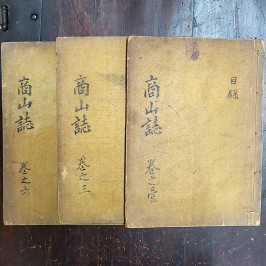 目錄
商山誌
卷之壹
商山誌
卷之三
商山誌
卷之六